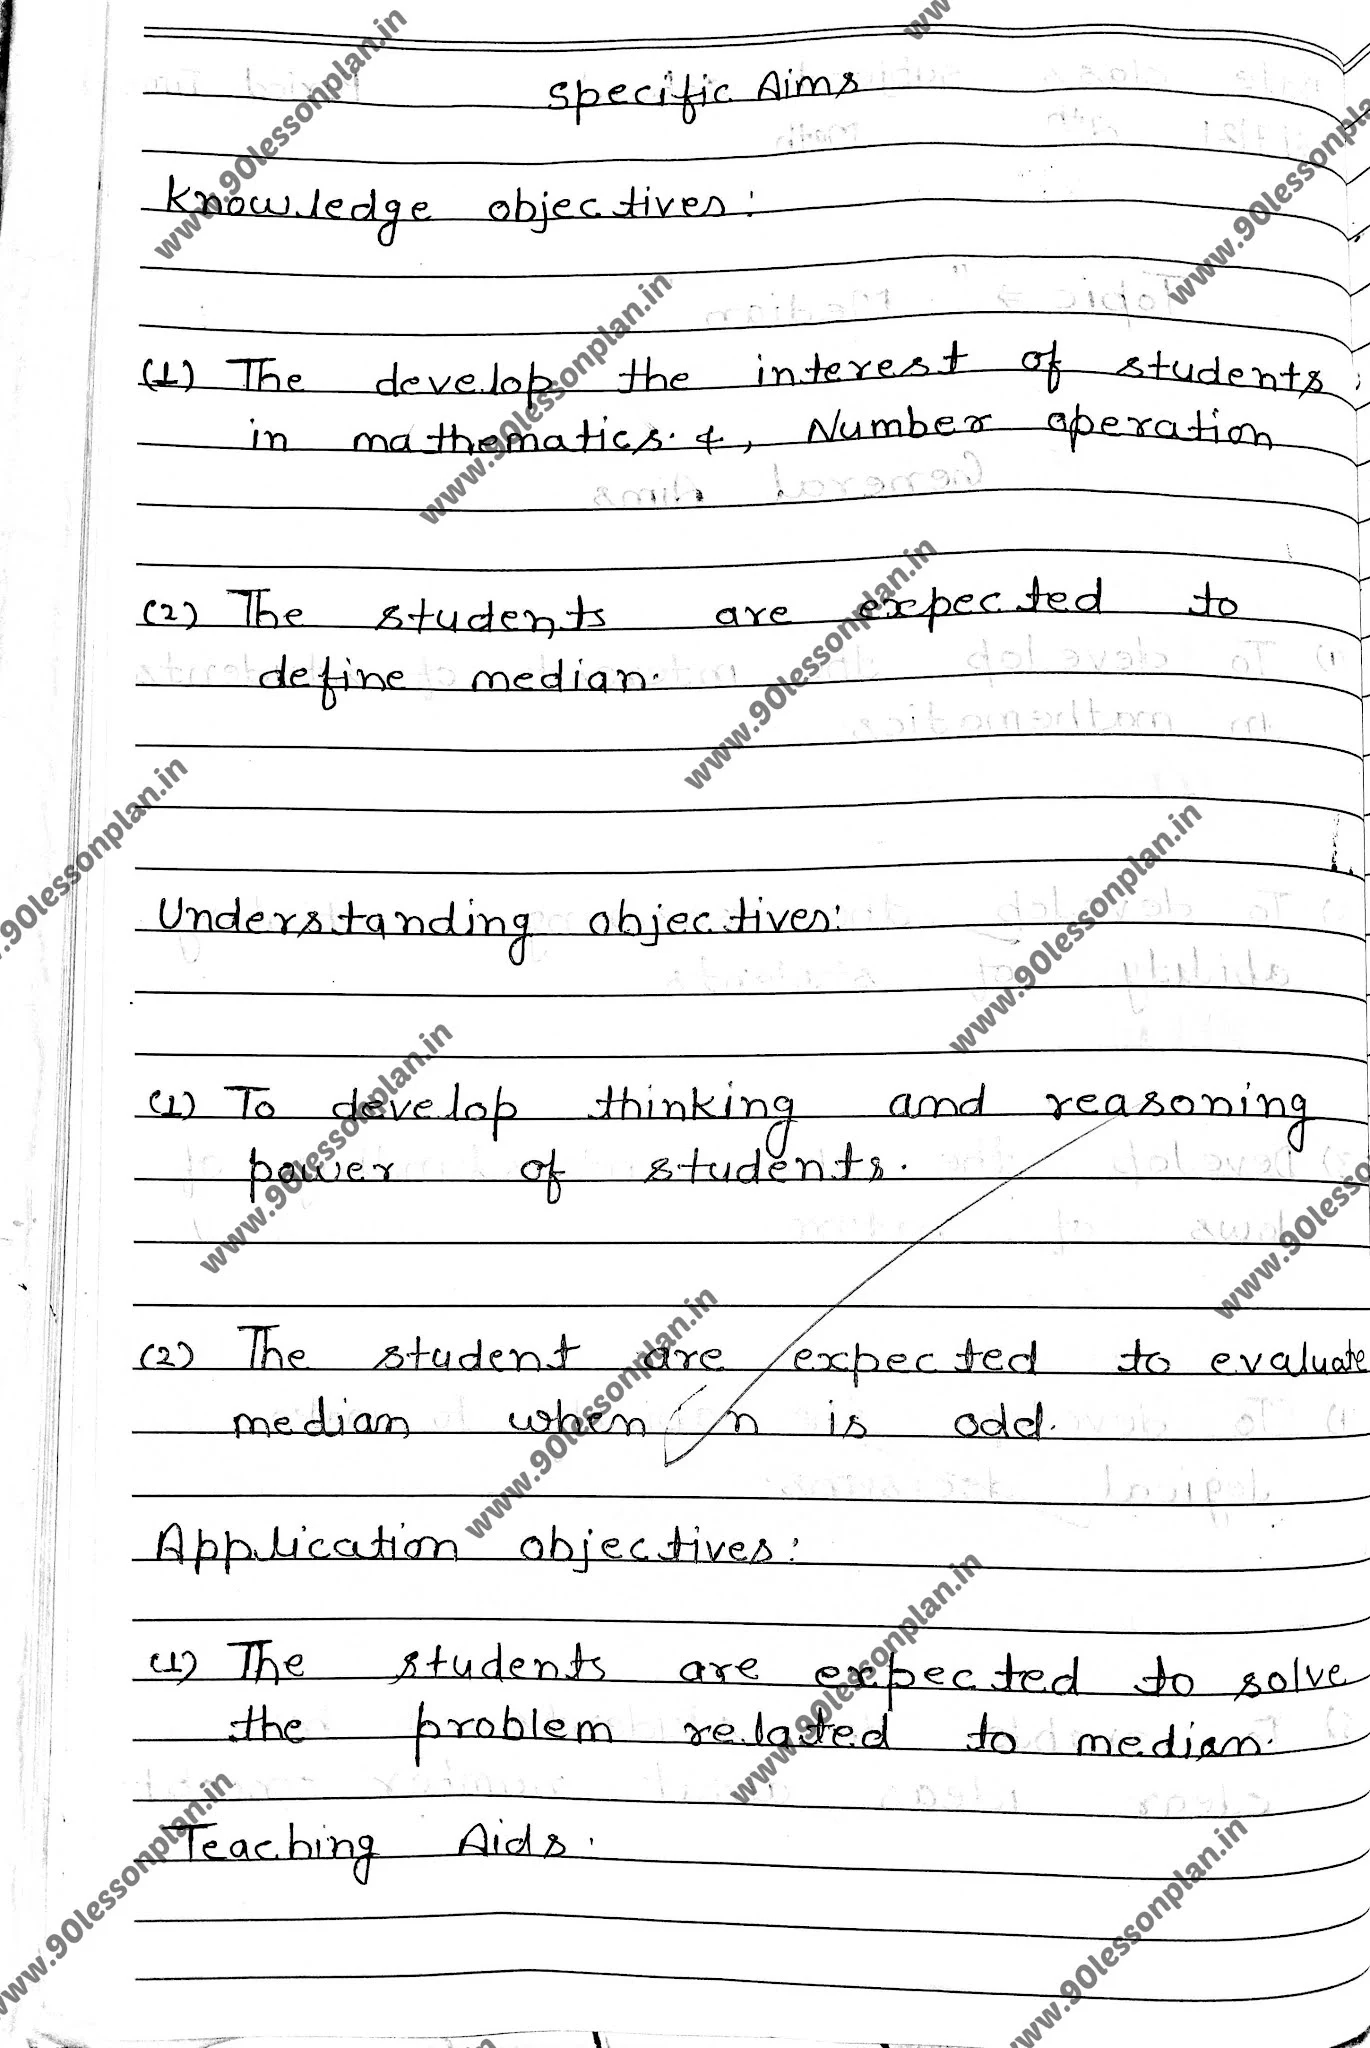 Specific Aims
Knowledge objectives:
(1) The develop the interest of students
in mathematics. &, Number operation
(2) The students are expected to
define median.
Understanding objectives:
(1) To develop thinking and reasoning
power of students.
(2) The student are expected to evaluate
median when n is odd.
Application objectives:
(1) The students are expected to solve
the problem related to median.
Teaching Aids.
www.90lessonplan.in